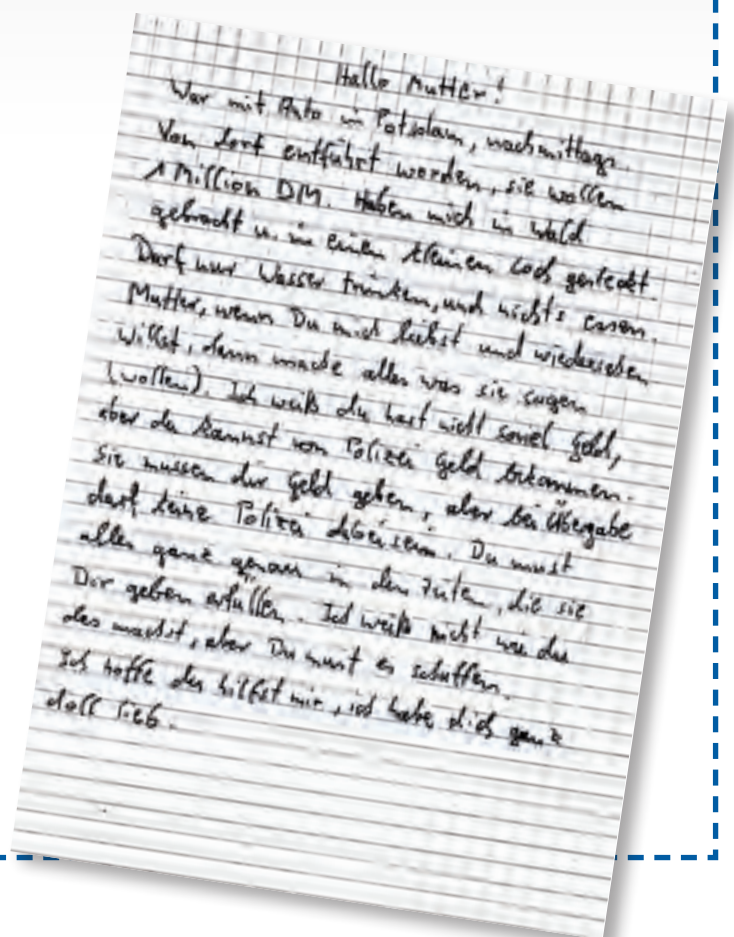 Hallo Mutter!
War mit Auto in Potsdam, nachmittags.
Von dort entführt worden, sie wollen
1 Million DM. Haben mich in Wald
gebracht u. in einen kleinen Loch gesteckt.
Darf nur Wasser trinken, und nichts essen.
Mutter, wenn Du mich liebst und wiedersehen
willst, dann mache alles was sie sagen
(wollen). Ich weiß du hast nicht soviel Geld,
aber du kannst von Polizei Geld bekommen.
Sie müssen dir Geld geben, aber bei Übergabe
darf keine Polizei dabeisein. Du musst
alles ganz genau in den Zeiten, die sie
Dir geben erfüllen. Ich weiß nicht wie du
das machst, aber Du musst es schaffen.
Ich hoffe du hilfst mir, ich habe dich ganz
doll lieb.